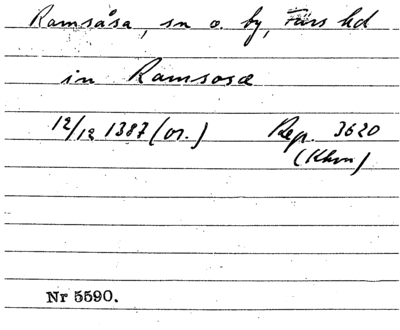 Ramsåsa, sn o. by, Färs hd
in Ramsosæ
12/12 1387 (or.) Rep. 3620
(Khvn)
Nr 5590.